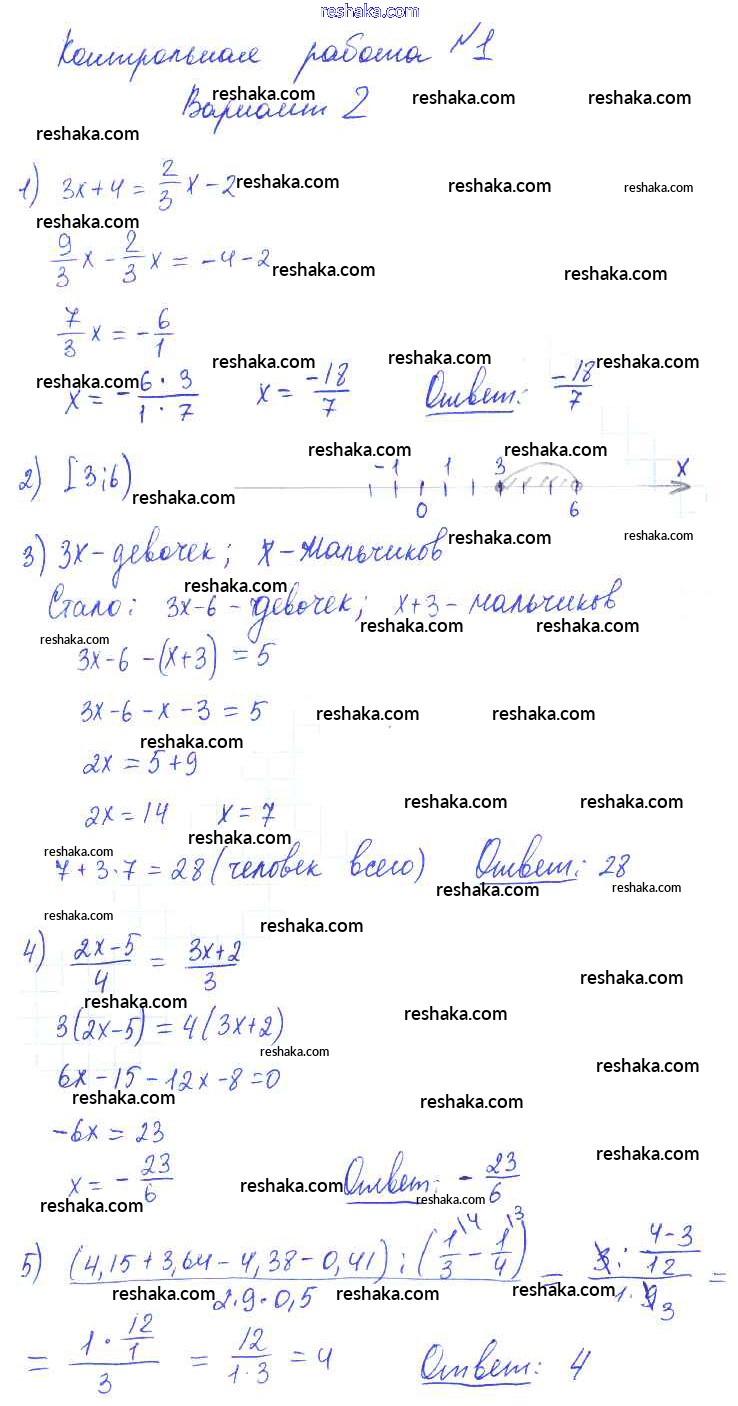 reshaka.com
Контрольная работа №1
reshaka.com reshaka.com reshaka.com
Вариант 2
reshaka.com
1) 3x+4 = 2/3 x - 2 reshaka.com reshaka.com reshaka.com
reshaka.com
9/3 x - 2/3 x = -4-2 reshaka.com reshaka.com
7/3 x = - 6/1
reshaka.com reshaka.com reshaka.com
reshaka.com
x = - 6·3/1·7 x = -18/7 Ответ: -18/7
reshaka.com reshaka.com
2) [3;6) reshaka.com -1 1 3 x
0 6
3) 3x-девочек; x-мальчиков reshaka.com reshaka.com
reshaka.com
Стало: 3x-6-девочек; x+3-мальчиков
reshaka.com reshaka.com reshaka.com
3x-6-(x+3) = 5
3x-6-x-3 = 5 reshaka.com reshaka.com
reshaka.com
2x = 5+9
2x = 14 x = 7 reshaka.com reshaka.com
reshaka.com reshaka.com
7+3·7 = 28 (человек всего) Ответ: 28
reshaka.com reshaka.com
reshaka.com reshaka.com
4) 2x-5/4 = 3x+2/3 reshaka.com
reshaka.com reshaka.com
3(2x-5) = 4(3x+2)
reshaka.com reshaka.com
6x-15-12x-8=0
reshaka.com reshaka.com
-6x = 23 reshaka.com
x = - 23/6 Ответ: - 23/6
reshaka.com reshaka.com reshaka.com reshaka.com
5) (4,15+3,64-4,38-0,41):(1/3\4 - 1/4\3)/2·9·0,5 = 3: 4-3/12/1·9 3 =
reshaka.com reshaka.com reshaka.com
= 1· 12/1/3 = 12/1·3 = 4 Ответ: 4